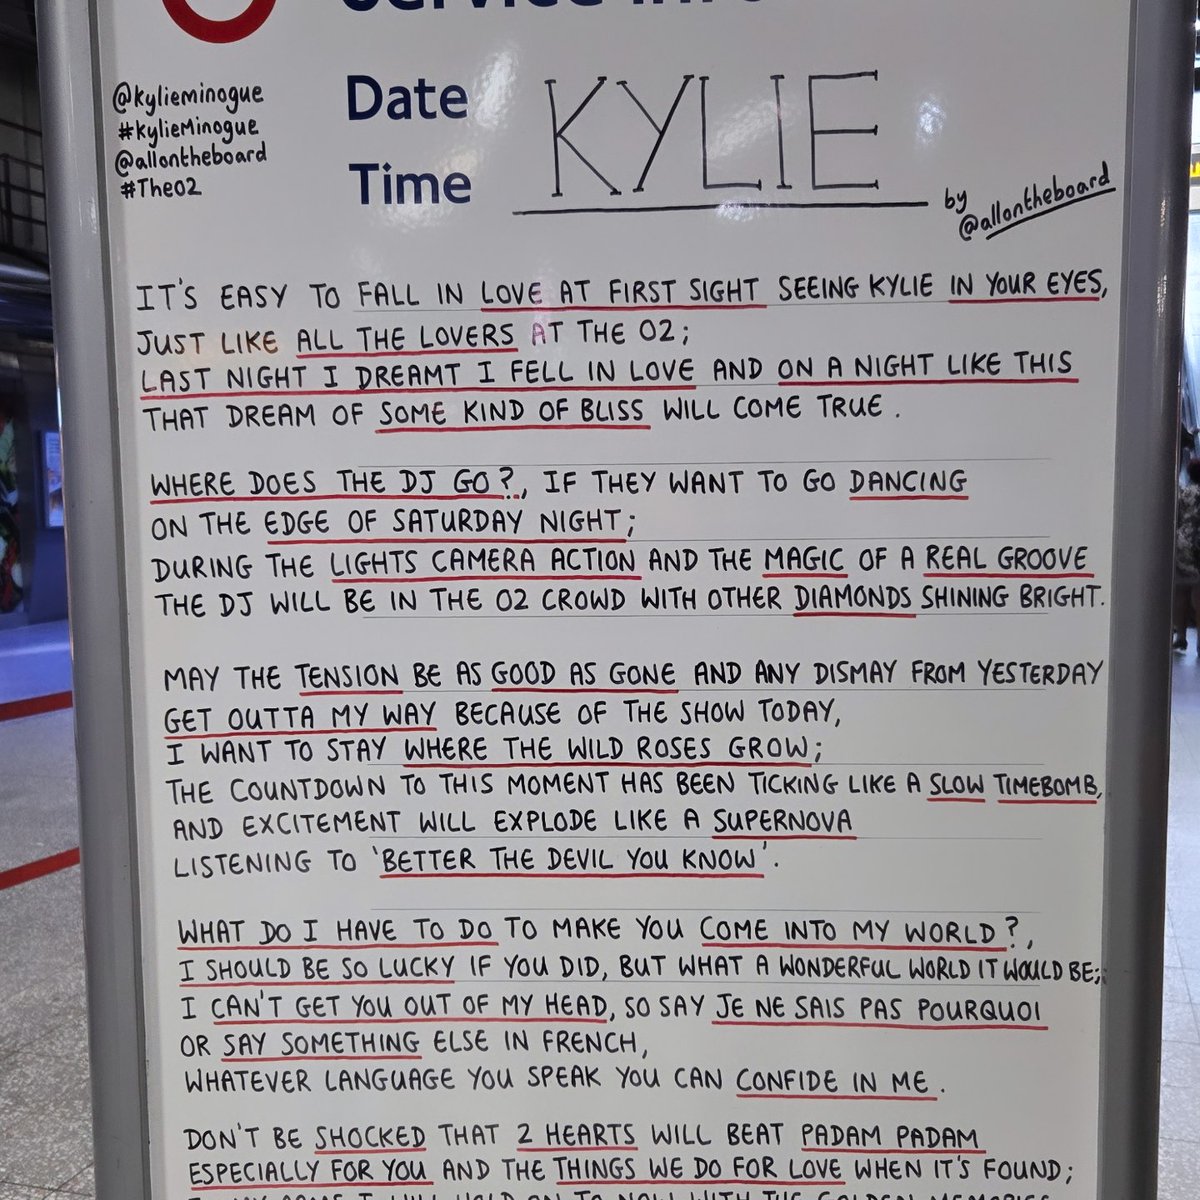 @kylieminogue
#KylieMinogue
@allontheboard
#TheO2
Date
Time
KYLIE
by
@allontheboard
IT'S EASY TO FALL IN LOVE AT FIRST SIGHT SEEING KYLIE IN YOUR EYES,
JUST LIKE ALL THE LOVERS AT THE O2;
LAST NIGHT I DREAMT I FELL IN LOVE AND ON A NIGHT LIKE THIS
THAT DREAM OF SOME KIND OF BLISS WILL COME TRUE.
WHERE DOES THE DJ GO?, IF THEY WANT TO GO DANCING
ON THE EDGE OF SATURDAY NIGHT;
DURING THE LIGHTS CAMERA ACTION AND THE MAGIC OF A REAL GROOVE
THE DJ WILL BE IN THE O2 CROWD WITH OTHER DIAMONDS SHINING BRIGHT.
MAY THE TENSION BE AS GOOD AS GONE AND ANY DISMAY FROM YESTERDAY
GET OUTTA MY WAY BECAUSE OF THE SHOW TODAY,
I WANT TO STAY WHERE THE WILD ROSES GROW;
THE COUNTDOWN TO THIS MOMENT HAS BEEN TICKING LIKE A SLOW TIMEBOMB,
AND EXCITEMENT WILL EXPLODE LIKE A SUPERNOVA
LISTENING TO 'BETTER THE DEVIL YOU KNOW'.
WHAT DO I HAVE TO DO TO MAKE YOU COME INTO MY WORLD?,
I SHOULD BE SO LUCKY IF YOU DID, BUT WHAT A WONDERFUL WORLD IT WOULD BE;
I CAN'T GET YOU OUT OF MY HEAD, SO SAY JE NE SAIS PAS POURQUOI
OR SAY SOMETHING ELSE IN FRENCH,
WHATEVER LANGUAGE YOU SPEAK YOU CAN CONFIDE IN ME.
DON'T BE SHOCKED THAT 2 HEARTS WILL BEAT PADAM PADAM
ESPECIALLY FOR YOU AND THE THINGS WE DO FOR LOVE WHEN IT'S FOUND;